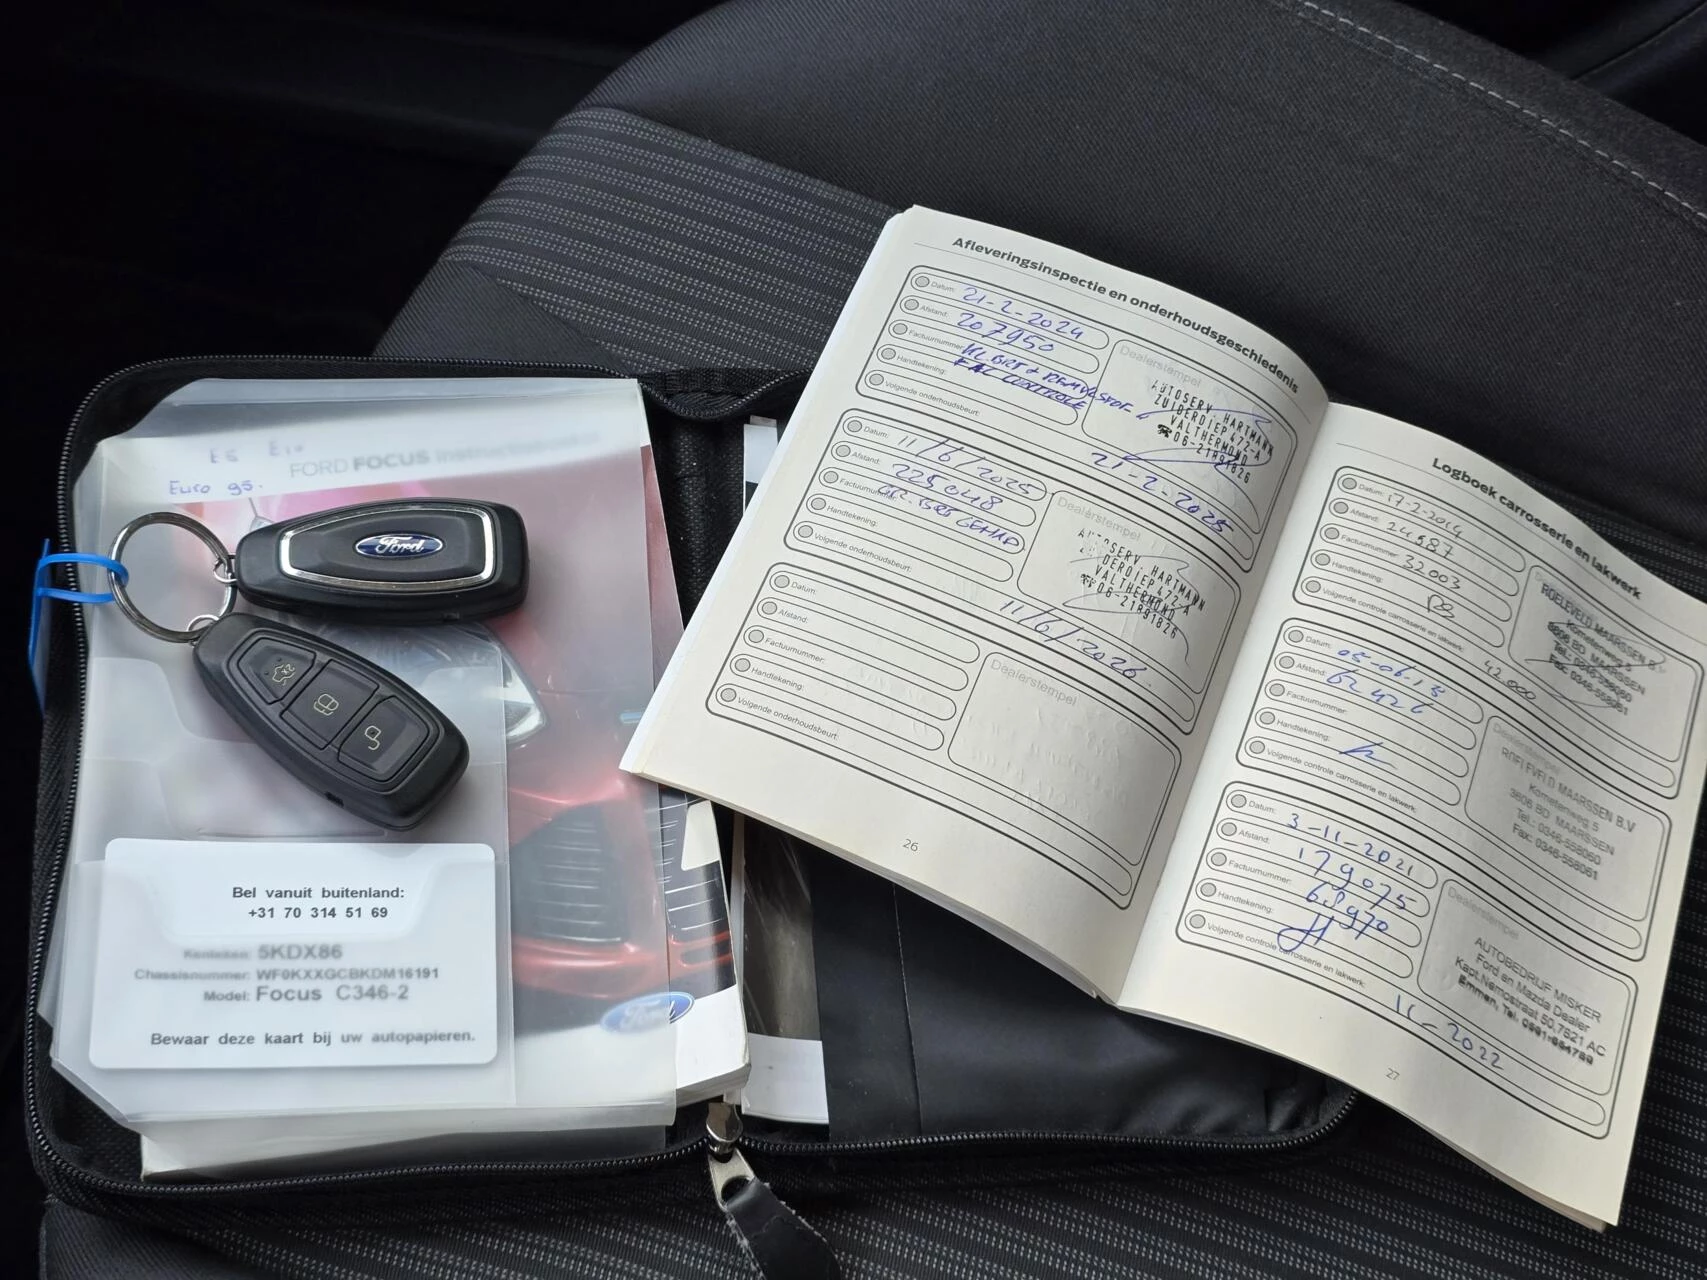 E5 E10
FORD FOCUS Instructieboekje
Euro 95.
Ford
Bel vanuit buitenland:
+31 70 314 51 69
Kenteken: 5KDX86
Chassisnummer: WF0KXXGCBKDM16191
Model: Focus C346-2
Bewaar deze kaart bij uw autopapieren.
Ford
Afleveringsinspectie en onderhoudsgeschiedenis
Datum: 21-2-2024
Afstand: 207950
Factuurnummer: KL BRT + REMVLSTOF.
Handtekening: CONTROLE
Volgende onderhoudsbeurt:
21-2-2025
Dealerstempel
AUTOSERV. HARTMANN
ZUIDERDIEP 472-A
VALTHERMOND
☎06-21891826
Datum: 11/6/2025
Afstand: 225048
Factuurnummer: GR. BRT GEHAD
Handtekening:
Volgende onderhoudsbeurt:
11/6/2026
Dealerstempel
AUTOSERV. HARTMANN
ZUIDERDIEP 472-A
VALTHERMOND
☎06-21891826
Datum:
Afstand:
Factuurnummer:
Handtekening:
Volgende onderhoudsbeurt:
Dealerstempel
26
Logboek carrosserie en lakwerk
Datum: 17-2-2014
Afstand: 24587
Factuurnummer: 32003
Handtekening:
Volgende controle carrosserie en lakwerk:
42.000
ROELEVELD MAARSSEN B.V
Kometenweg 5
3606 BD MAARSSEN
Tel.: 0346-558060
Fax: 0346-558061
Datum: 05-06.15
Afstand: 62426
Factuurnummer:
Handtekening:
Volgende controle carrosserie en lakwerk:
Dealerstempel
ROELEVELD MAARSSEN B.V
Kometenweg 5
3606 BD MAARSSEN
Tel.: 0346-558060
Fax: 0346-558061
Datum: 3-11-2021
Afstand: 179075
Factuurnummer: 68970
Handtekening:
Volgende controle carrosserie en lakwerk:
11-2022
Dealerstempel
AUTOBEDRIJF MISKER
Ford en Mazda Dealer
Kapt.Nemostraat 50,7821 AC
Emmen, Tel. 0591-
27